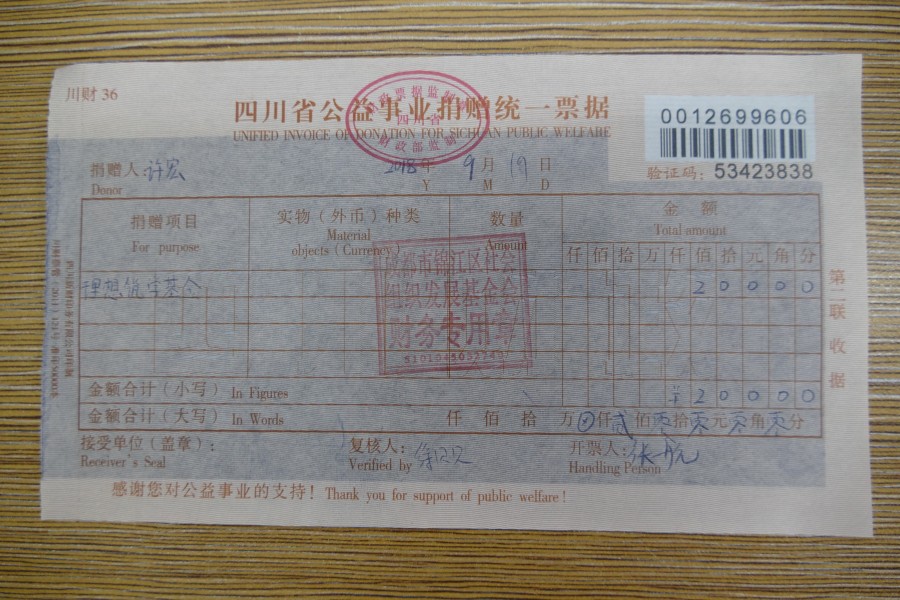 川财 36
四川省公益事业捐赠统一票据
UNIFIED INVOICE OF DONATION FOR SICHUAN PUBLIC WELFARE
财政票据监制
四川省
财政部监制
0012699606
验证码：53423838
捐赠人：许宏
Donor
2018年 9月 19日
Y M D
捐赠项目 实物（外币）种类 数量 金额
For purpose Material objects (Currency) Amount Total amount
仟 佰 拾 万 仟 佰 拾 元 角 分
2 0 0 0 0
成都市锦江区社会
组织发展基金会
财务专用章
金额合计（小写） In Figures ¥ 2 0 0 0 0
金额合计（大写） In Words 仟 佰 拾 万 仟 贰 佰 零 拾 零 元 零 角 零 分
接受单位（盖章）： 复核人： 开票人：张航
Receiver's Seal Verified by Handling Person
感谢您对公益事业的支持！ Thank you for support of public welfare!
第二联 收据